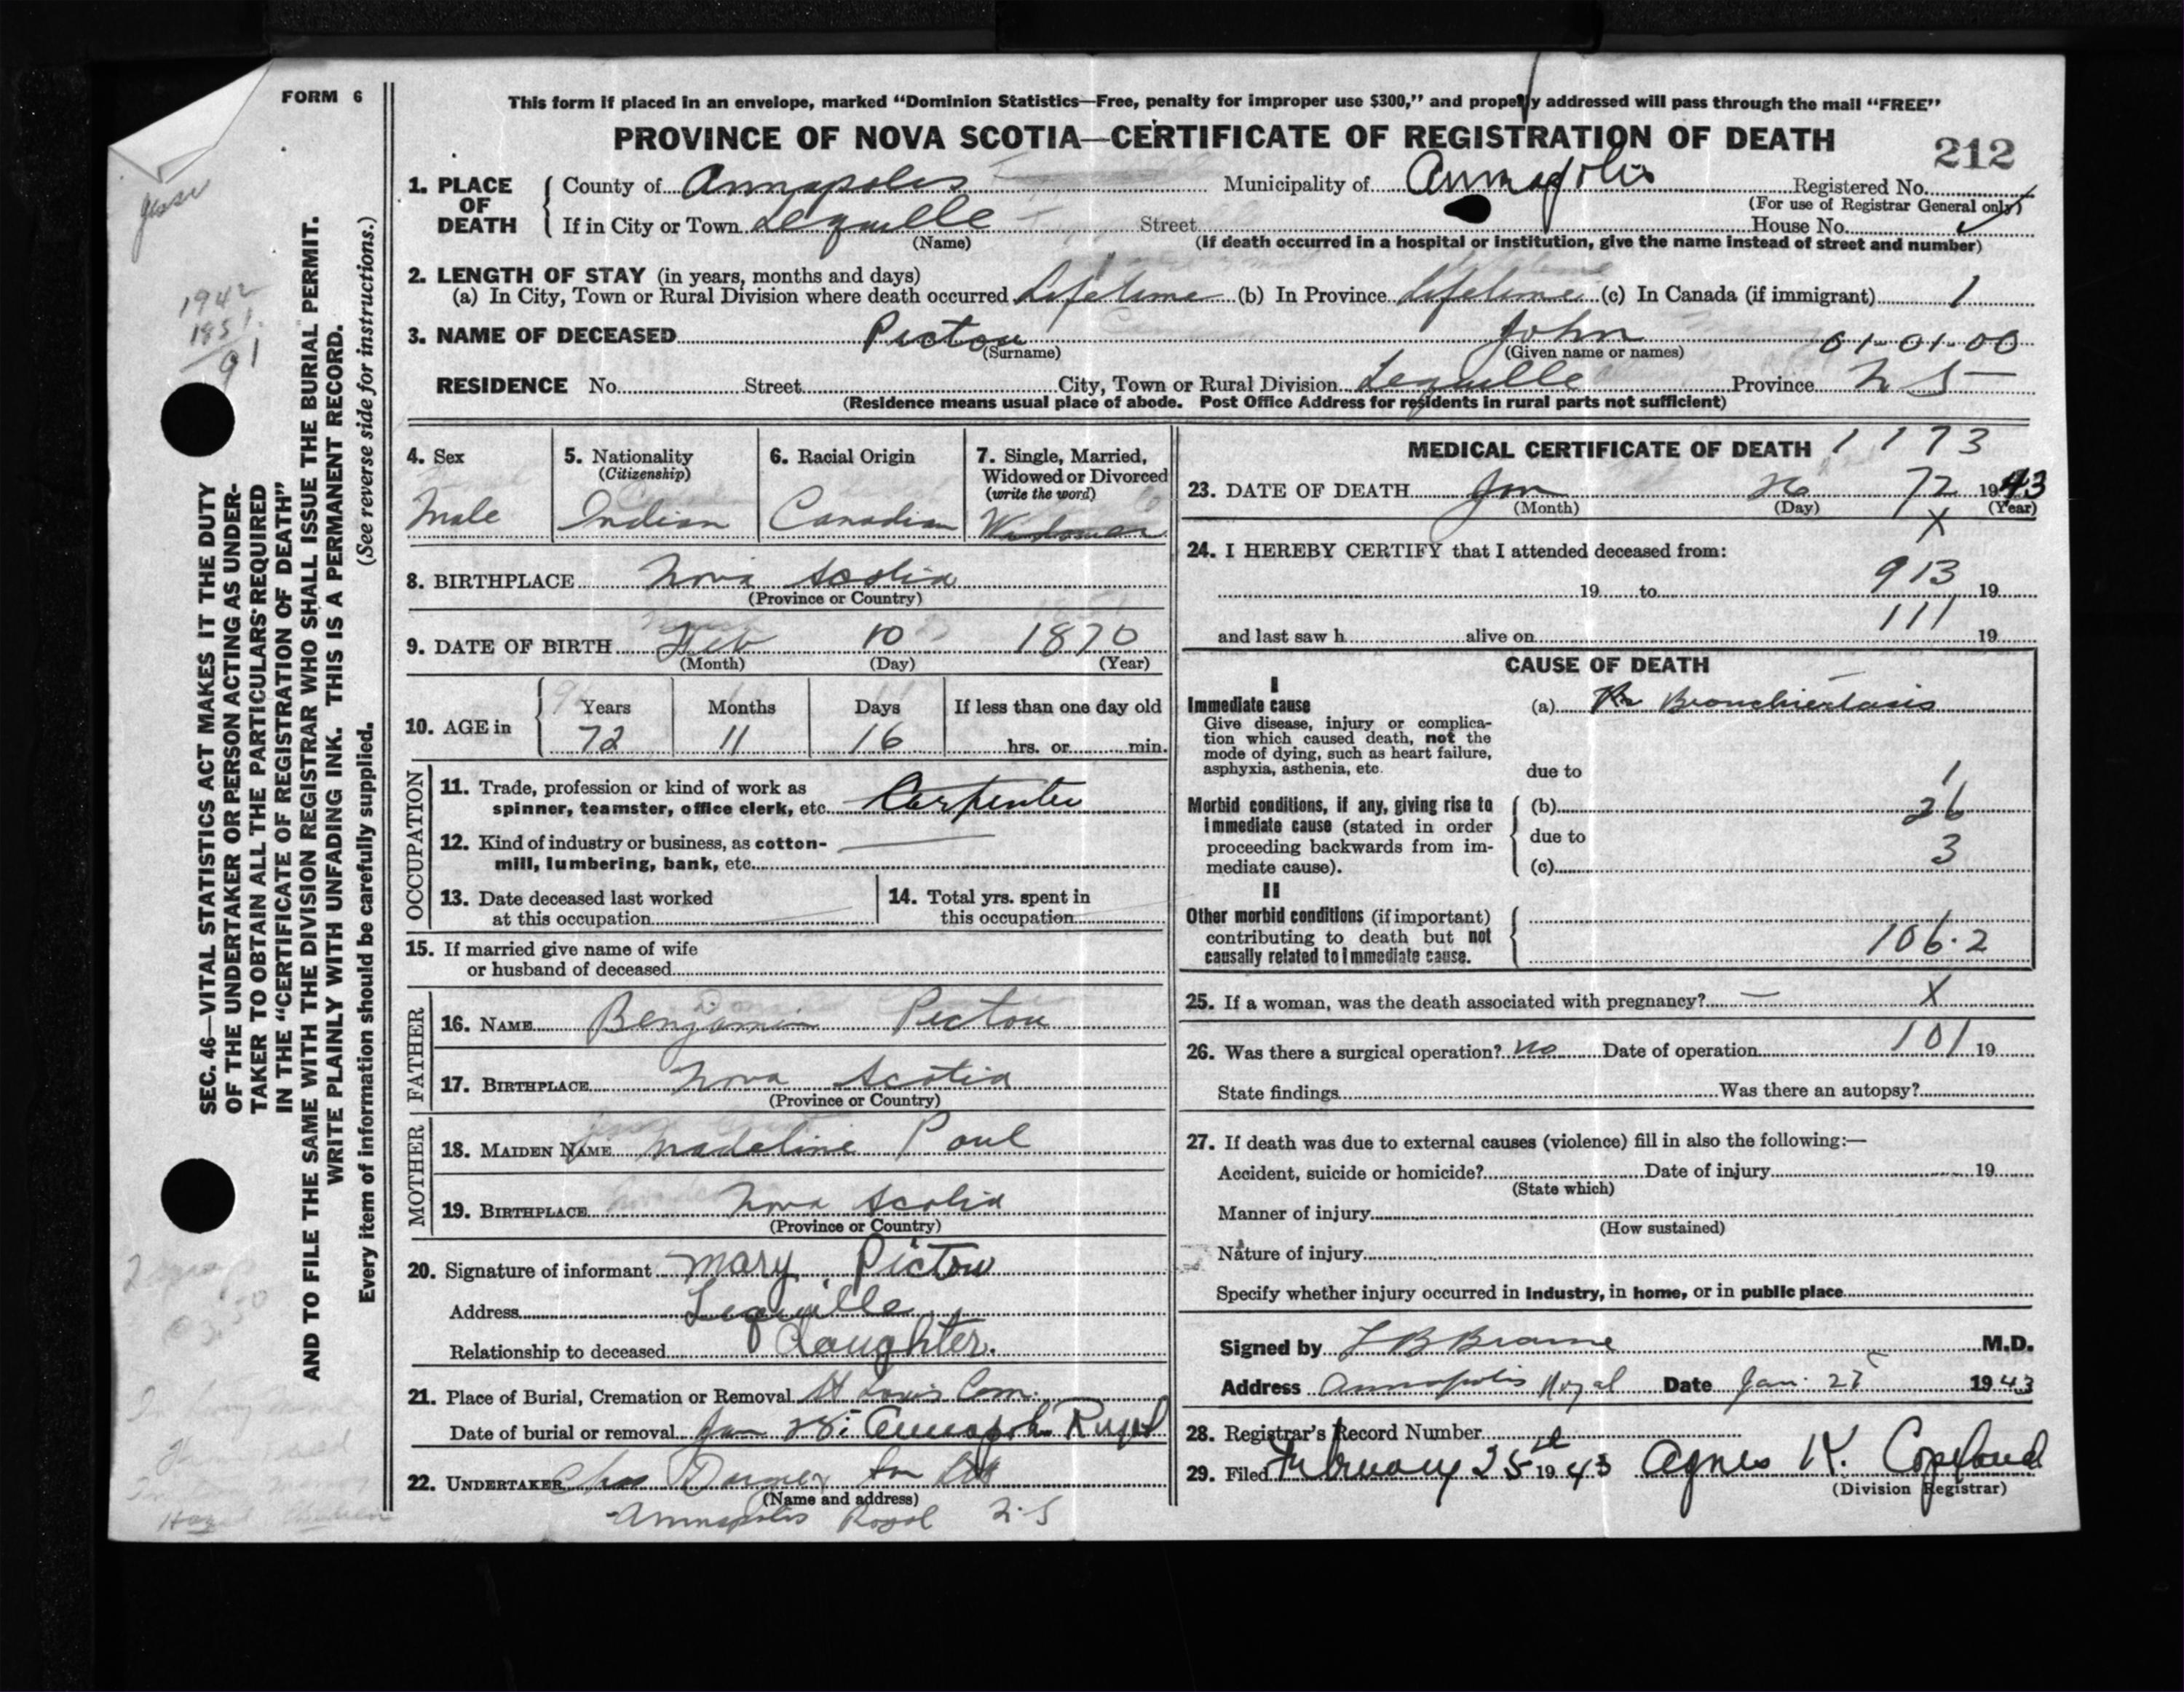 FORM 6
This form if placed in an envelope, marked “Dominion Statistics—Free, penalty for improper use $300,” and properly addressed will pass through the mail “FREE”
PROVINCE OF NOVA SCOTIA—CERTIFICATE OF REGISTRATION OF DEATH
212
1. PLACE OF DEATH
County of Annapolis Municipality of Annapolis Registered No.
(For use of Registrar General only)
If in City or Town Lequille Street House No.
(Name) (If death occurred in a hospital or institution, give the name instead of street and number)
2. LENGTH OF STAY (in years, months and days)
(a) In City, Town or Rural Division where death occurred Lifetime (b) In Province Lifetime (c) In Canada (if immigrant) 1
3. NAME OF DECEASED Pictou John 01-01-00
(Surname) (Given name or names)
RESIDENCE No. Street City, Town or Rural Division Lequille Province N S
(Residence means usual place of abode. Post Office Address for residents in rural parts not sufficient)
4. Sex
Male
5. Nationality
(Citizenship)
Indian
6. Racial Origin
Canadian
7. Single, Married,
Widowed or Divorced
(write the word)
Widower
8. BIRTHPLACE Nova Scotia
(Province or Country)
9. DATE OF BIRTH Feb 10 1870
(Month) (Day) (Year)
10. AGE in
Years Months Days If less than one day old
72 11 16 hrs. or min.
OCCUPATION
11. Trade, profession or kind of work as
spinner, teamster, office clerk, etc. Carpenter
12. Kind of industry or business, as cotton-
mill, lumbering, bank, etc.
13. Date deceased last worked
at this occupation
14. Total yrs. spent in
this occupation
15. If married give name of wife
or husband of deceased
FATHER
16. NAME Benjamin Pictou
17. BIRTHPLACE Nova Scotia
(Province or Country)
MOTHER
18. MAIDEN NAME Madeline Paul
19. BIRTHPLACE Nova Scotia
(Province or Country)
20. Signature of informant Mary Pictou
Address Lequille
Relationship to deceased daughter.
21. Place of Burial, Cremation or Removal St Louis Cem.
Date of burial or removal Jan 28: Annapolis Royal
22. UNDERTAKER Chas
(Name and address)
Annapolis Royal N.S
MEDICAL CERTIFICATE OF DEATH 1173
23. DATE OF DEATH Jan 26 72 1943
(Month) (Day) (Year)
X
24. I HEREBY CERTIFY that I attended deceased from:
913
19 to 19
111
and last saw h alive on 19
CAUSE OF DEATH
I
Immediate cause
Give disease, injury or complica-
tion which caused death, not the
mode of dying, such as heart failure,
asphyxia, asthenia, etc.
(a) Bronchiectasis
due to 1
Morbid conditions, if any, giving rise to
immediate cause (stated in order
proceeding backwards from im-
mediate cause).
(b) 26
due to
(c) 3
II
Other morbid conditions (if important)
contributing to death but not
causally related to immediate cause.
106.2
25. If a woman, was the death associated with pregnancy? — X
26. Was there a surgical operation? no Date of operation 101 19
State findings Was there an autopsy?
27. If death was due to external causes (violence) fill in also the following:—
Accident, suicide or homicide? Date of injury 19
(State which)
Manner of injury
(How sustained)
Nature of injury
Specify whether injury occurred in industry, in home, or in public place
Signed by M.D.
Address Annapolis Royal Date Jan. 1943
28. Registrar's Record Number
29. Filed February 25th 1943 Agnes K. Copeland
(Division Registrar)
SEC. 46—VITAL STATISTICS ACT MAKES IT THE DUTY
OF THE UNDERTAKER OR PERSON ACTING AS UNDER-
TAKER TO OBTAIN ALL THE PARTICULARS REQUIRED
IN THE “CERTIFICATE OF REGISTRATION OF DEATH”
AND TO FILE THE SAME WITH THE DIVISION REGISTRAR WHO SHALL ISSUE THE BURIAL PERMIT.
WRITE PLAINLY WITH UNFADING INK. THIS IS A PERMANENT RECORD.
Every item of information should be carefully supplied. (See reverse side for instructions.)
Jesse
1942
1851
91